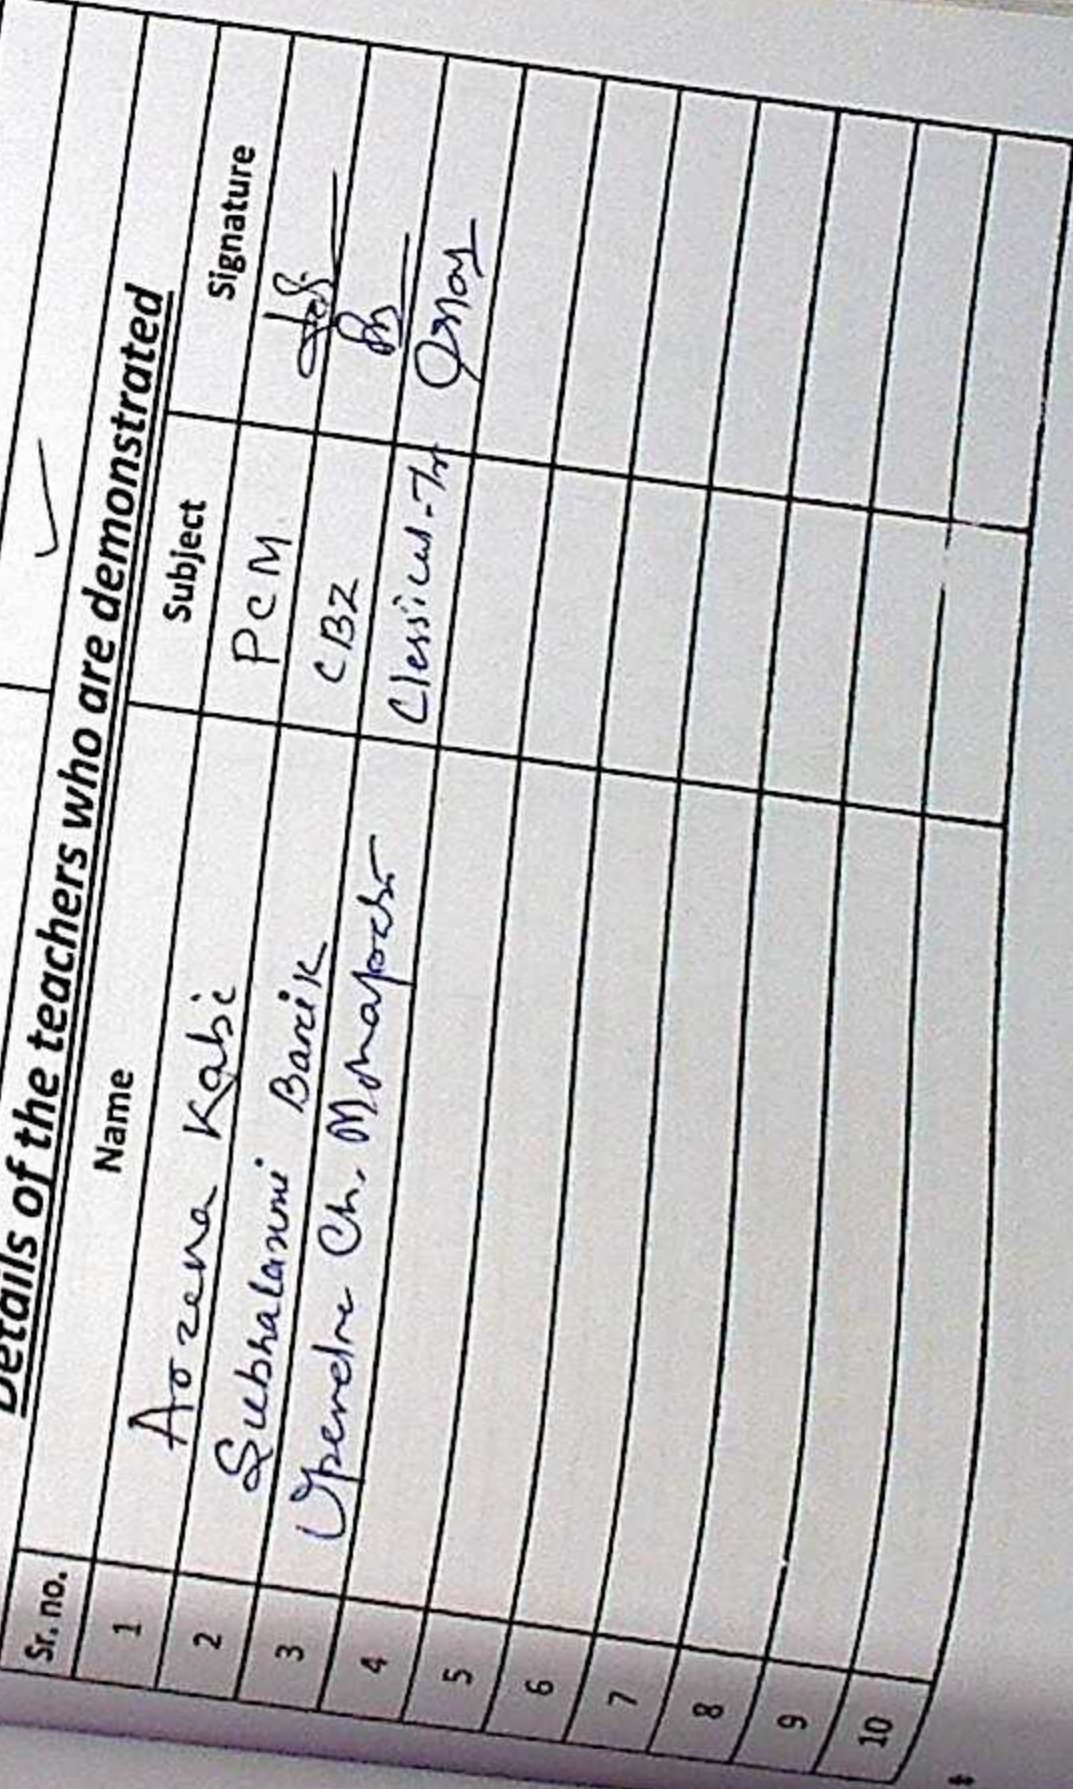 Details of the teachers who are demonstrated
Sr. no. Name Subject Signature
1 Arzena Kabi PCM
2 Subhalaxmi Barik CBZ
3 Upendra Ch. Mohapatra Classical-Tr
4
5
6
7
8
9
10